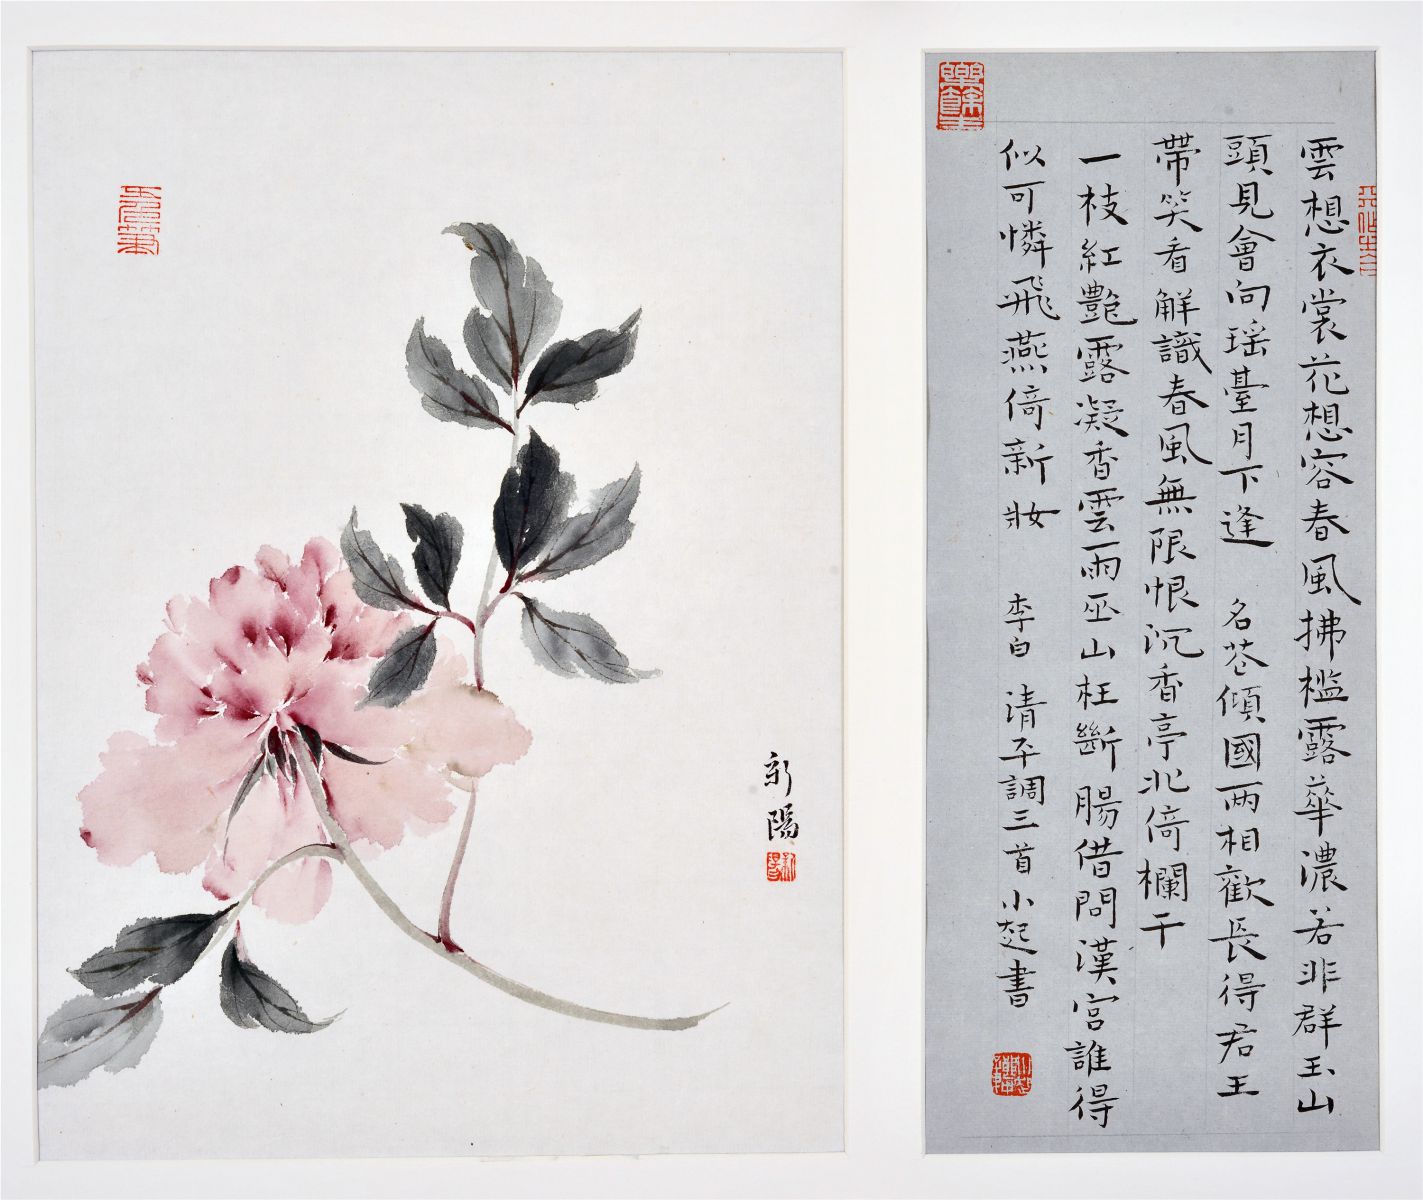 雲想衣裳花想容春風拂檻露華濃若非群玉山
頭見會向瑶臺月下逢 名花傾國兩相歡長得君王
帶笑看解識春風無限恨沉香亭北倚欄干
一枝紅艷露凝香雲雨巫山枉斷腸借問漢宮誰得
似可憐飛燕倚新妝 李白 清平調三首 小起書
新陽